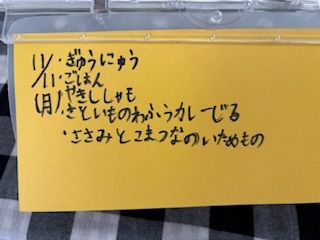 11/11(月)
・ぎゅうにゅう
・ごはん
・やきししゃも
・さといものわふうカレーじる
・ささみとこまつなのいためもの